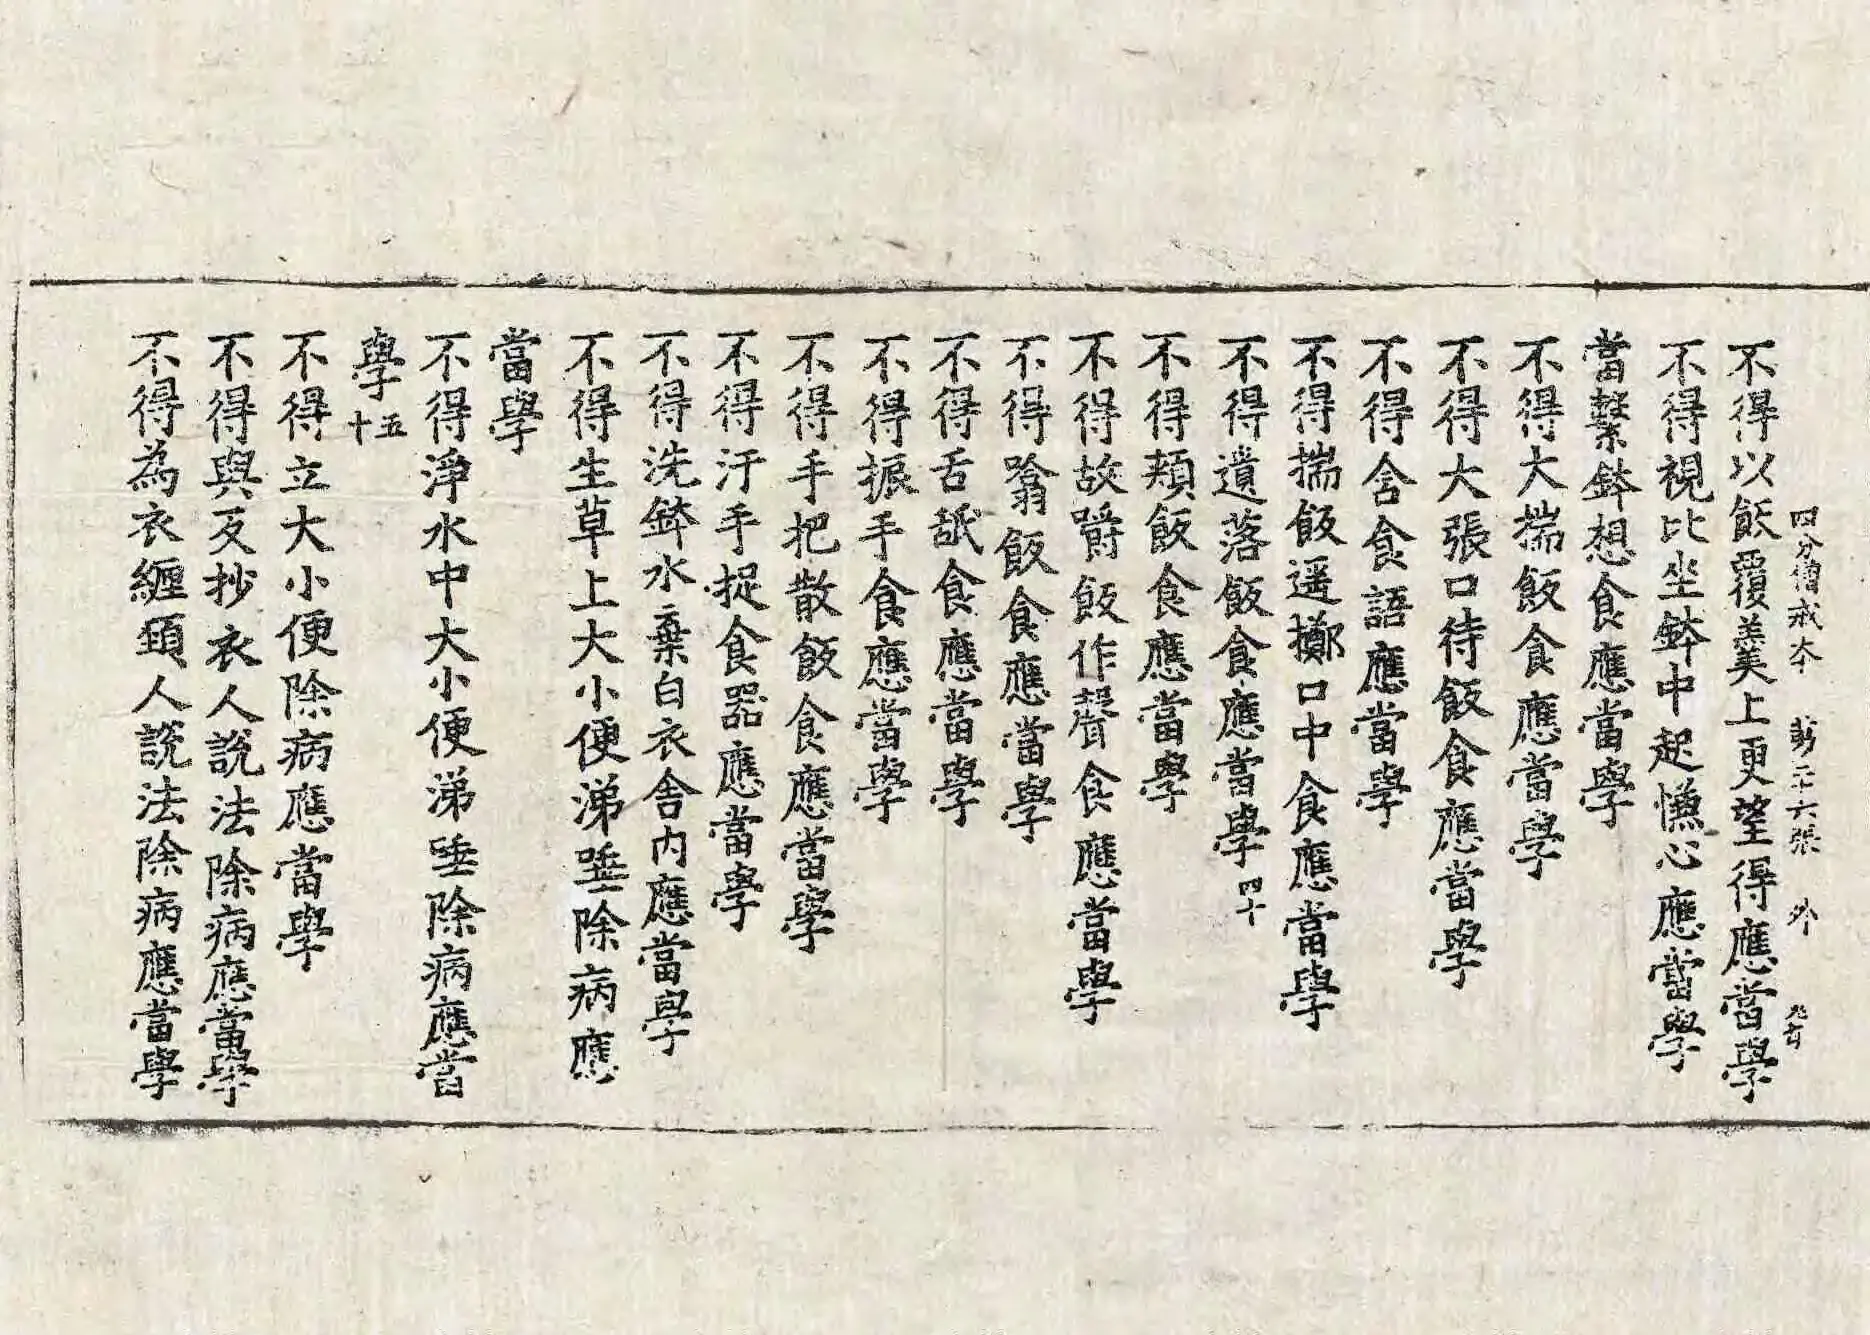 四分僧戒本 第二十六張 外
不得以飯覆羹上更望得應當學
不得視比坐鉢中起慊心應當學
當繫鉢想食應當學
不得大揣飯食應當學
不得大張口待飯食應當學
不得含食語應當學
不得揣飯遥擲口中食應當學
不得遺落飯食應當學四十
不得頰飯食應當學
不得故嚼飯作聲食應當學
不得噏飯食應當學
不得舌舐食應當學
不得振手食應當學
不得手把散飯食應當學
不得汙手捉食器應當學
不得洗鉢水棄白衣舍內應當學
不得生草上大小便涕唾除病應
當學
不得淨水中大小便涕唾除病應當
學五十
不得立大小便除病應當學
不得與反抄衣人說法除病應當學
不得為衣纏頸人說法除病應當學